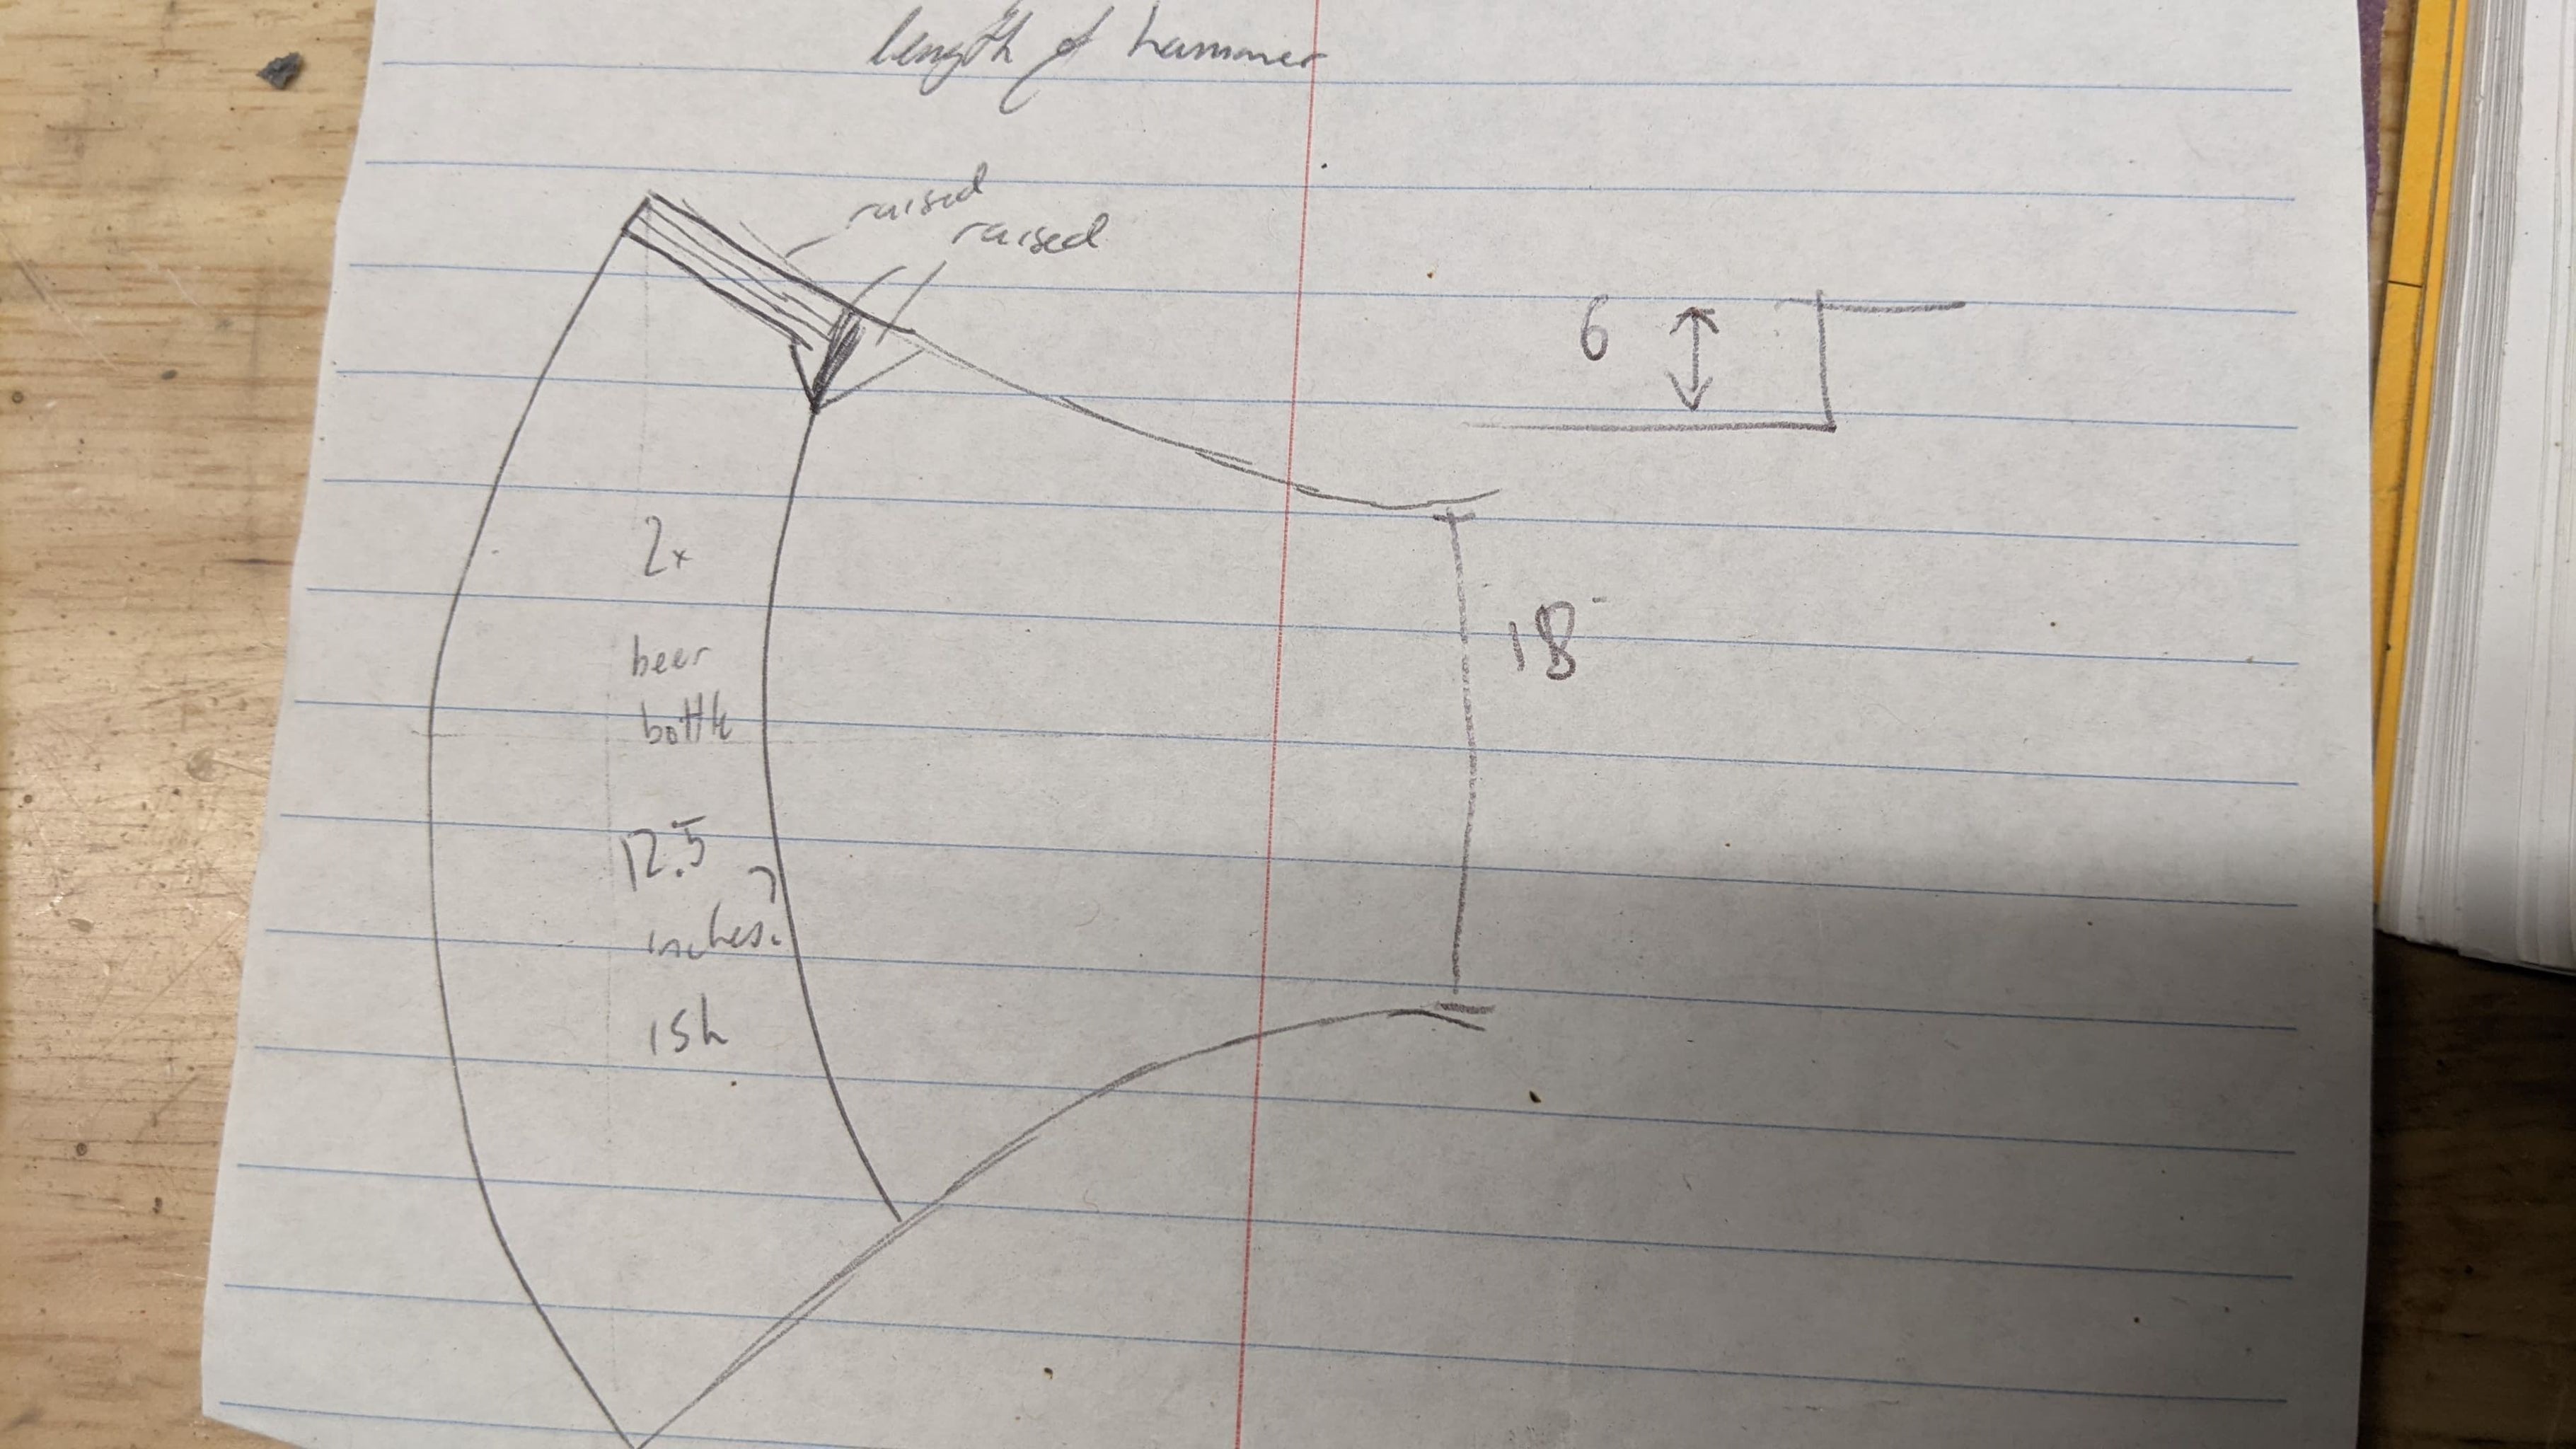 length of hammer
raised
raised
6
2x
beer
bottle
18
12.5
inches?
ish